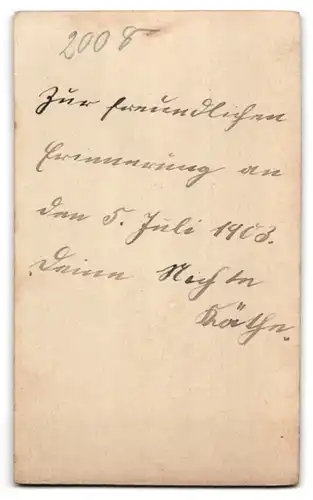 2008
Zur freundlichen
Erinnerung an
den 5. Juli 1903.
Deine Nichte
Käthe.